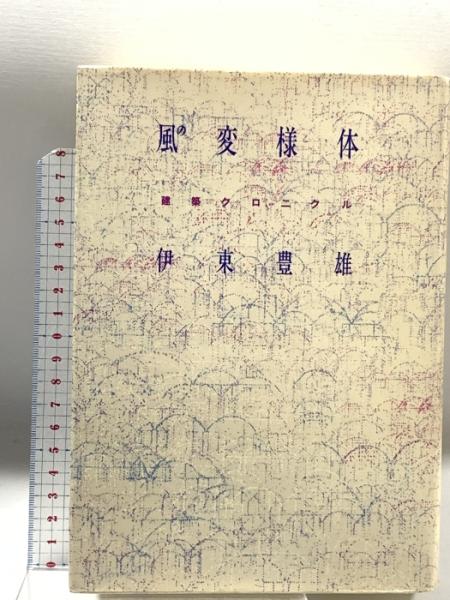 風の変様体
建築クロニクル
伊東豊雄
8
7
6
5
4
3
2
1
0
9
8
7
6
5
4
3
2
1
0